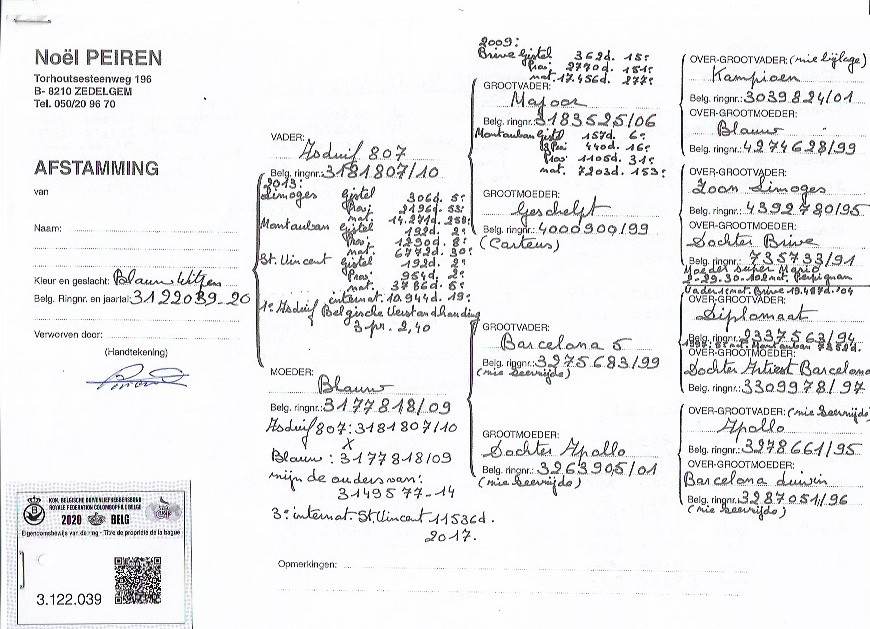 Noël PEIREN
Torhoutsesteenweg 196
B- 8210 ZEDELGEM
Tel. 050/20 96 70
AFSTAMMING
van
Naam:
Kleur en geslacht: Blauw Witpen
Belg. Ringnr. en jaartal: 3122039-20
Verworven door:
(Handtekening)
KON. BELGISCHE DUIVENLIEFHEBBERSBOND
ROYALE FEDERATION COLOMBOPHILE BELGE
2020 BELG
Eigendomsbewijs van de ring - Titre de propriété de la bague
3.122.039
VADER:
Asduif 807
Belg. ringnr.: 3181807/10
2013:
Limoges Gistel 306d. 5e
Prov. 2196d. 53e
nat. 14.271d. 258e
Montauban Gistel 192d. 2e
Prov. 1290d. 8e
nat. 6772d. 30e
St. Vincent Gistel 192d. 2e
Prov. 954d. 2e
nat. 3786d. 5e
internat. 10.944d. 19e
1e Asduif Belgische Verstandhouding
3 pr. 2,40
MOEDER:
Blauw
Belg. ringnr.: 3177818/09
Asduif 807: 3181807/10
X
Blauw: 3177818/09
zijn de ouders van:
3149577-14
3e internat. St. Vincent 11536d.
2017.
Opmerkingen:
2009:
Brive Gistel 362d. 15e
Prov. 2770d. 151e
nat. 17.456d. 277e
GROOTVADER:
Majoor
Belg. ringnr.: 3183525/06
Montauban Gistel 157d. 6e
440d. 16e
Prov. 1105d. 31e
nat. 7203d. 153e
GROOTMOEDER:
Geschelpt
Belg. ringnr.: 4000900/99
(Carteus)
GROOTVADER:
Barcelona 5
Belg. ringnr.: 3275683/99
(zie keerzijde)
GROOTMOEDER:
Dochter Apollo
Belg. ringnr.: 3263905/01
(zie keerzijde)
OVER-GROOTVADER: (zie bijlage)
Kampioen
Belg. ringnr.: 3039824/01
OVER-GROOTMOEDER:
Blauw
Belg. ringnr.: 4274628/99
OVER-GROOTVADER:
Zoon Limoges
Belg. ringnr.: 4392780/95
OVER-GROOTMOEDER:
Dochter Brive
Belg. ringnr.: 735733/91
Moeder Super Mario
2-29.30-102 nat. Perpignan
Vader 1e nat. Brive 19.487d. '04
OVER-GROOTVADER:
Diplomaat
Belg. ringnr.: 2337563/94
OVER-GROOTMOEDER:
Dochter Artiest Barcelona
Belg. ringnr.: 3309978/97
OVER-GROOTVADER: (zie keerzijde)
Apollo
Belg. ringnr.: 3278661/95
OVER-GROOTMOEDER:
Barcelona duivin
Belg. ringnr.: 3287051/96
(zie keerzijde)